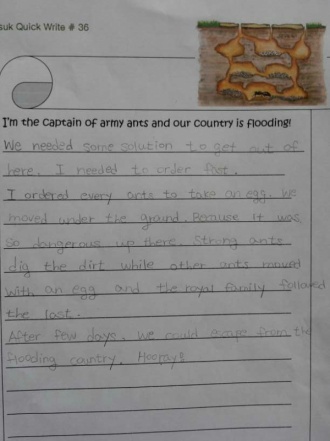 suk Quick Write # 36
I'm the captain of army ants and our country is flooding!
We needed some solution to get out of
here. I needed to order fast.
I ordered every ants to take an egg. We
moved under the ground. Because it was
so dangerous up there. Strong ants
dig the dirt while other ants moved
with an egg and the royal family followed
the last.
After few days, we could escape from the
flooding country. Hooray!